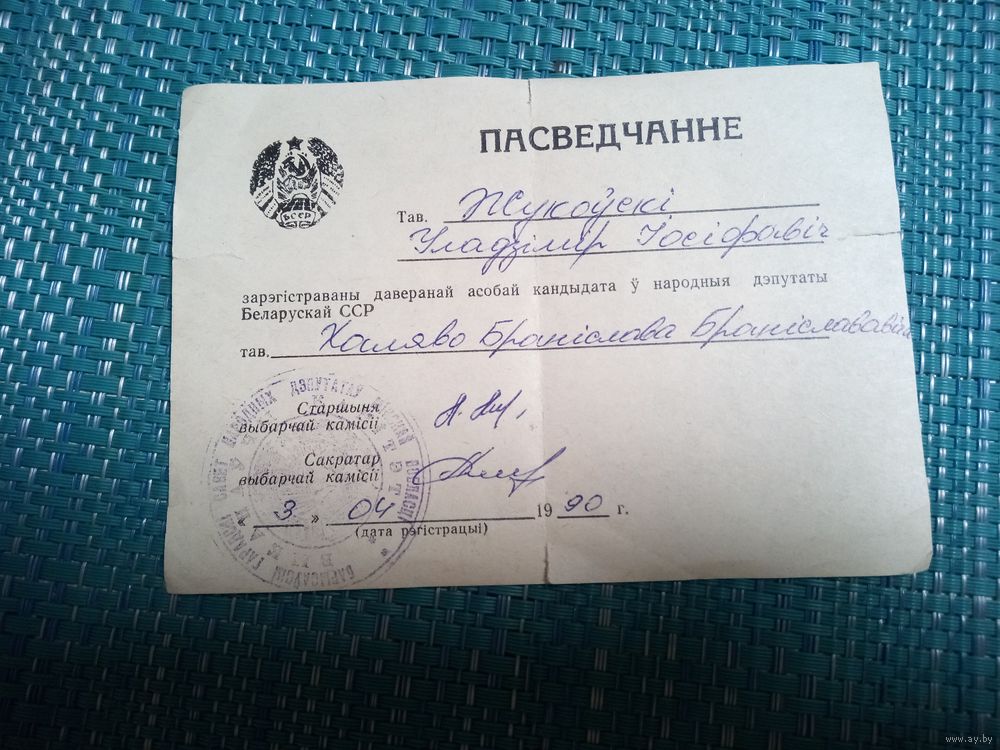 ПАСВЕДЧАННЕ
БССР
Тав. Жукоўскі
Уладзімір Іосіфавіч
зарэгістраваны даверанай асобай кандыдата ў народныя дэпутаты
Беларускай ССР
тав. Халяво Браніслава Браніслававіча
Старшыня
выбарчай камісіі
Сакратар
выбарчай камісіі
« 3 » 04 1990 г.
(дата рэгістрацыі)
БАРЫСАЎСКІ ГАРАДСКІ САВЕТ НАРОДНЫХ ДЭПУТАТАЎ МІНСКАЙ ВОБЛАСЦІ
www.ay.by